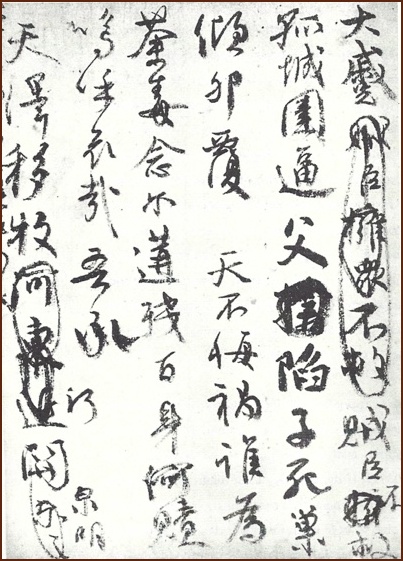 大蹙賊臣擁衆不救賊臣不救
孤城圍逼父陷子死巢
傾卵覆天不悔禍誰爲
荼毒念爾遘殘百身何贖
嗚乎哀哉吾承
泉明
天澤移牧河東近關